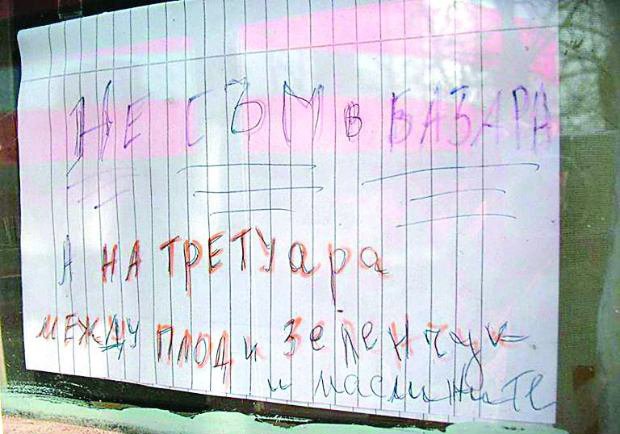 НЕ СЪМ в БАЗАРА
А НА ТРЕТУара
МЕЖДУ ПЛОД и Зеленчук
и маслините